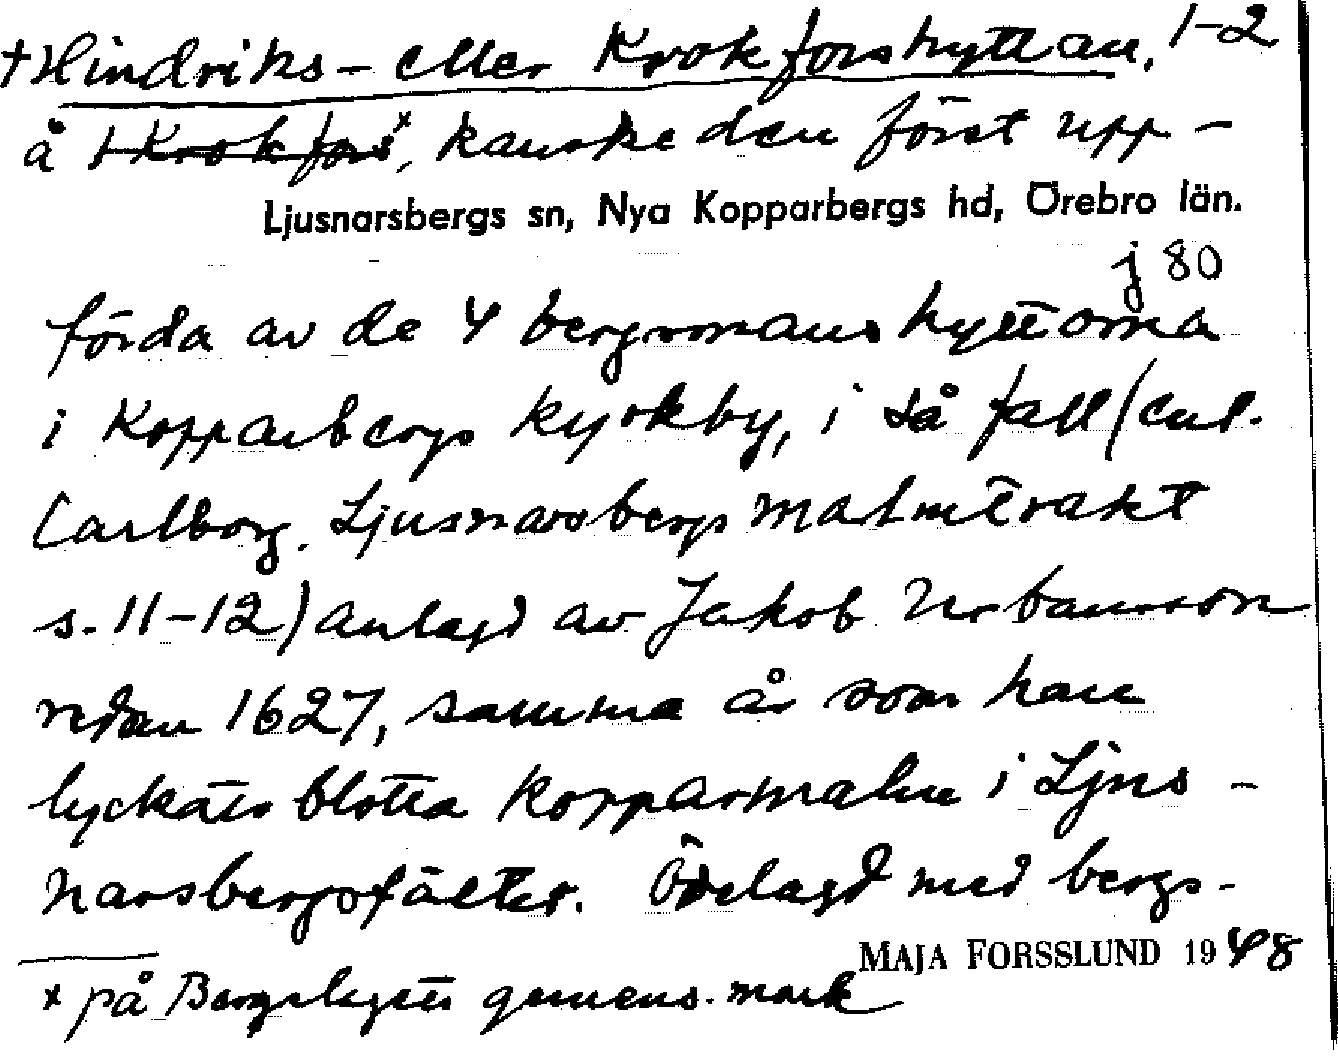 +Hindriks- eller Krokforshyttan, 1-2
å +Krokfors×, kanske den först upp-
Ljusnarsbergs sn, Nya Kopparbergs hd, Örebro län.
j 80
förda av de 4 bergsmanshyttorna
i Kopparbergs kyrkby, i så fall (enl.
Carlborg. Ljusnarsbergs malmtrakt
s. 11-12) anlagd av Jakob Urbansson
redan 1627, samma år som han
lyckats blotta kopparmalm i Ljus-
narsbergsfältet. Ödelagd med bergs-
MAJA FORSSLUND 1948
× på Bergslagets gemens. mark